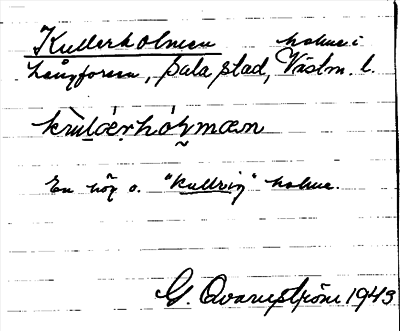 Kullerholmen holme i
Långforsen, Sala stad, Västm. l.
En hög o. "kullrig" holme.
G. Qvarnström 1943